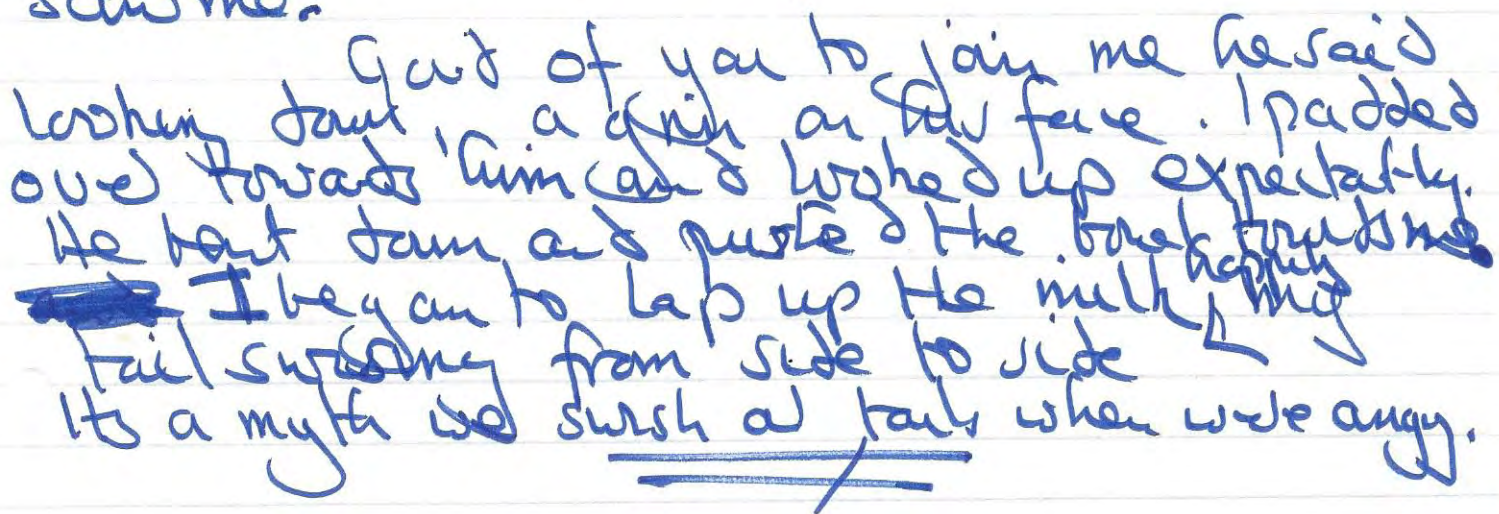 saw me.
Good of you to join me he said
looking down, a grin on his face. I padded
over towards him and looked up expectatly.
He bent down and pushed the bowl towards me.
I began to lap up the milk happily my
tail swishing from side to side
Its a myth we swish our tails when we're angry.